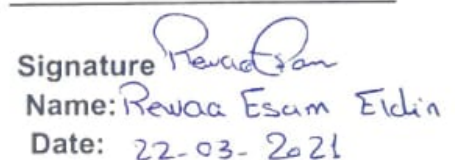 Signature Rewaa Esam
Name: Rewaa Esam Eldin
Date: 22-03-2021